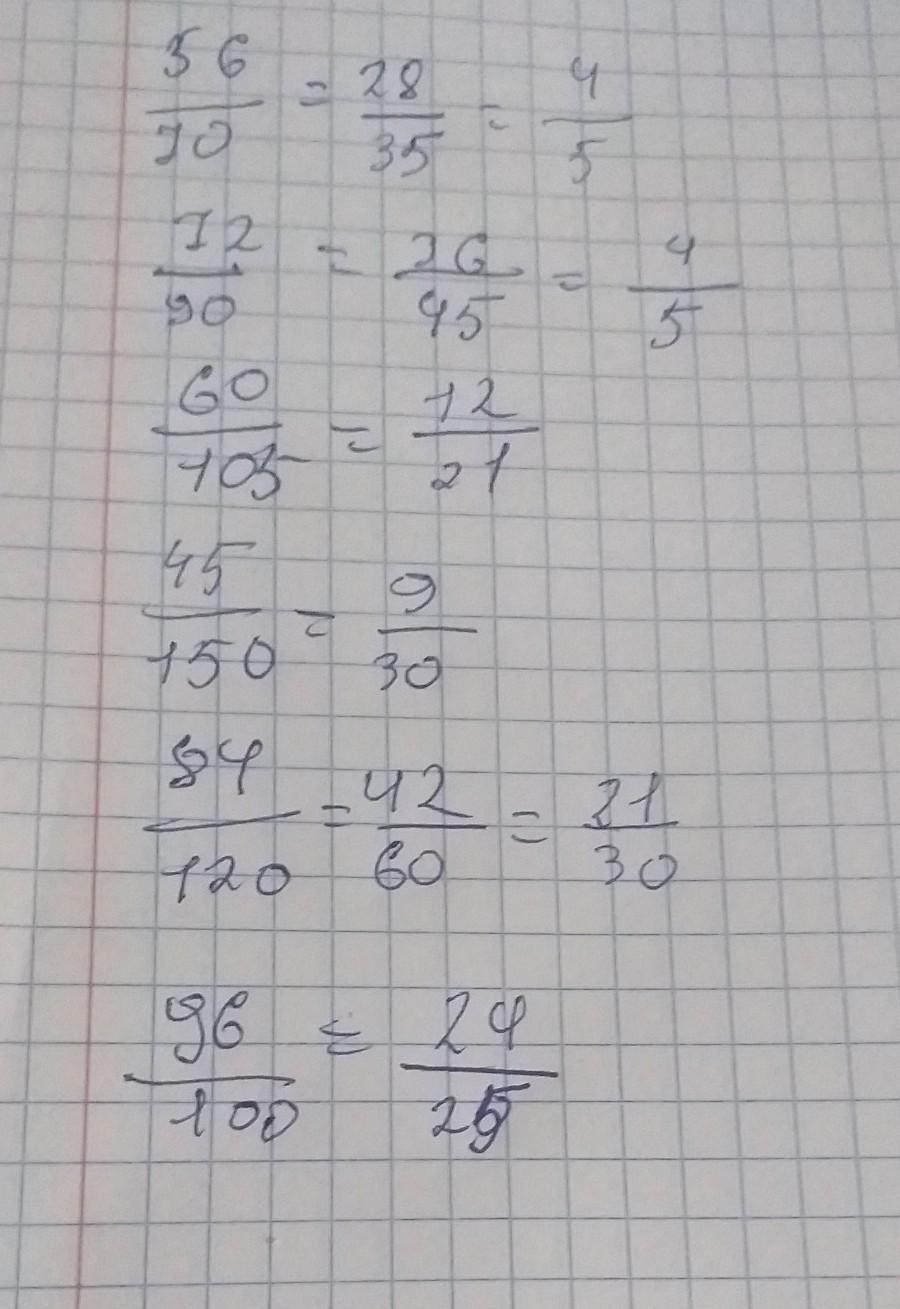 56/70 = 28/35 = 4/5
72/90 = 36/45 = 4/5
60/105 = 12/21
45/150 = 9/30
84/120 = 42/60 = 21/30
96/100 = 24/25